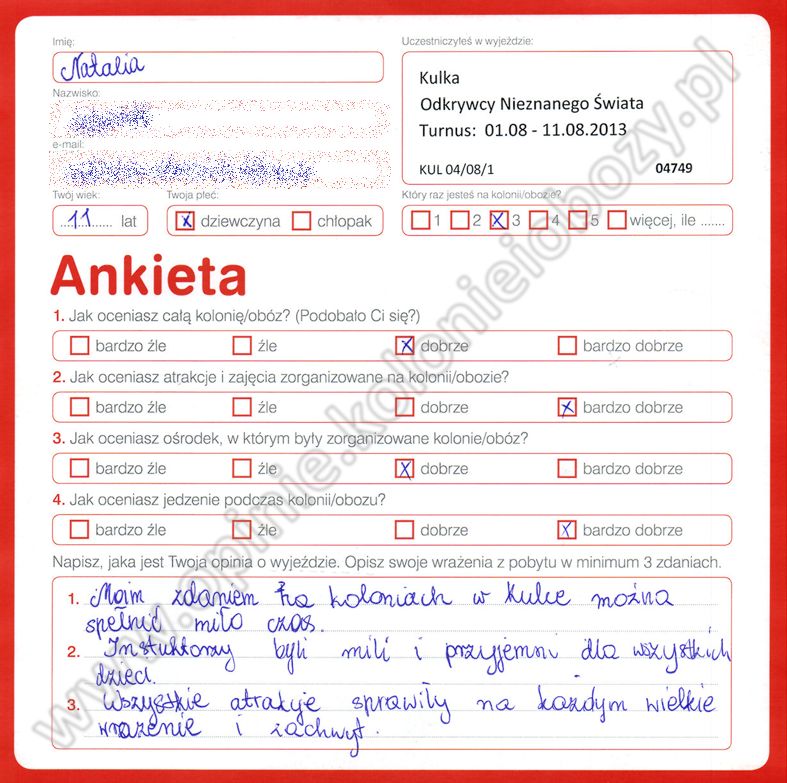 Imię:
Natalia
Nazwisko:
e-mail:
Twój wiek:
11 lat
Twoja płeć:
dziewczyna chłopak
Uczestniczyłeś w wyjeździe:
Kulka
Odkrywcy Nieznanego Świata
Turnus: 01.08 - 11.08.2013
KUL 04/08/1 04749
Który raz jesteś na kolonii/obozie?
1 2 3 4 5 więcej, ile .......
Ankieta
1. Jak oceniasz całą kolonię/obóz? (Podobało Ci się?)
bardzo źle źle dobrze bardzo dobrze
2. Jak oceniasz atrakcje i zajęcia zorganizowane na kolonii/obozie?
bardzo źle źle dobrze bardzo dobrze
3. Jak oceniasz ośrodek, w którym były zorganizowane kolonie/obóz?
bardzo źle źle dobrze bardzo dobrze
4. Jak oceniasz jedzenie podczas kolonii/obozu?
bardzo źle źle dobrze bardzo dobrze
Napisz, jaka jest Twoja opinia o wyjeździe. Opisz swoje wrażenia z pobytu w minimum 3 zdaniach.
1. Moim zdaniem na koloniach w Kulce można
spełnić miło czas.
2. Instuktorzy byli mili i przyjemni dla wszystkich
dzieci.
3. Wszystkie atrakcje sprawiły na każdym wielkie
wrażenie i zachwyt.
www.opinie.kolonieiobozy.pl